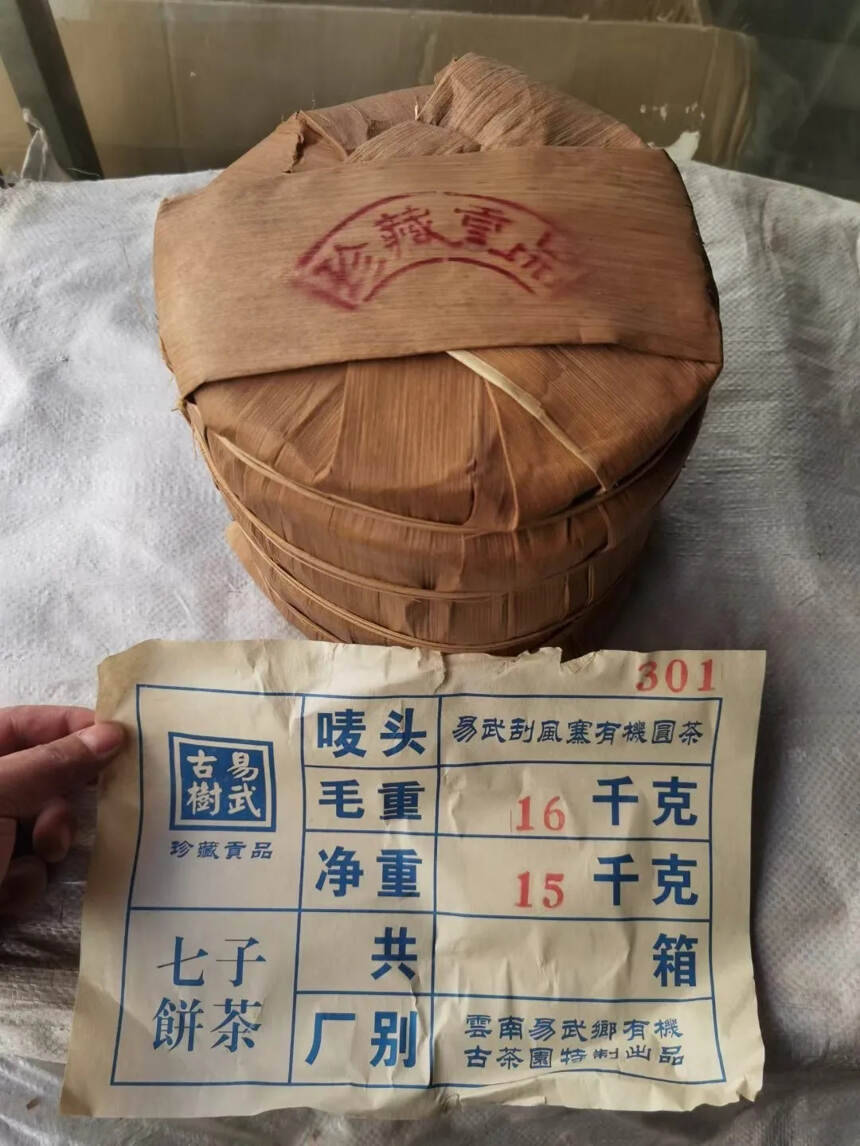 珍藏貢品
301
易武
古樹
珍藏貢品
七子
餅茶
唛头 易武刮風寨有機圓茶
毛重 16 千克
净重 15 千克
共 箱
厂别 雲南易武鄉有機
古茶園特制出品